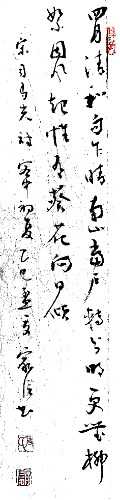 四月清和雨乍晴南山當戶轉分明更無柳
絮因風起惟有葵花向日傾
宋司馬光詩客中初夏乙巳孟夏家書